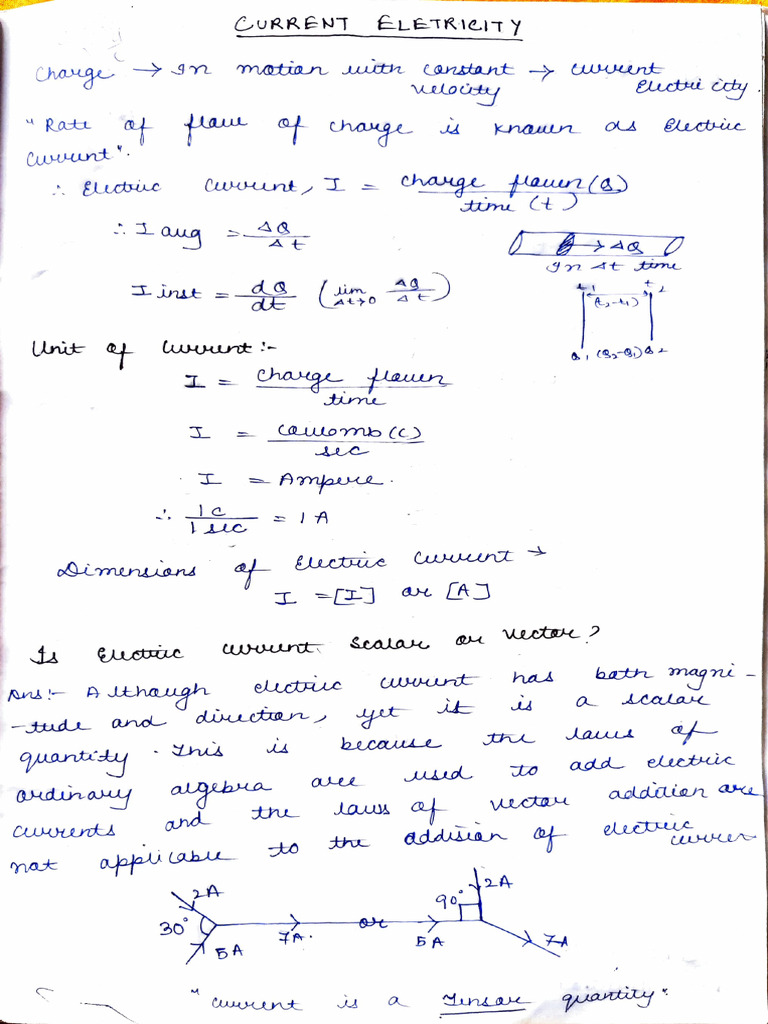 CURRENT ELETRICITY
Charge → In motion with constant → current
velocity Electricity.
"Rate of flow of charge is known as Electric
current".
∴ Electric current, I = charge flown (Q) / time (t)
∴ I avg = ΔQ / Δt
→ ΔQ
In Δt time
I inst = dQ / dt (lim Δt→0 ΔQ / Δt)
t1 (t2-t1) t2
Q1 (Q2-Q1) Q2
Unit of current:-
I = charge flown / time
I = coulomb (c) / sec
I = Ampere.
∴ 1c / 1 sec = 1 A
Dimensions of Electric current →
I = [I] or [A]
Is Electric current scalar or vector?
Ans:- Although electric current has both magni-
-tude and direction, yet it is a scalar
quantity. This is because the laws of
ordinary algebra are used to add electric
currents and the laws of vector addition are
not applicable to the addision of electric
curren
2A 90° 2A
30° 7A. or 5A 7A
5A
"current is a Tensor quantity".